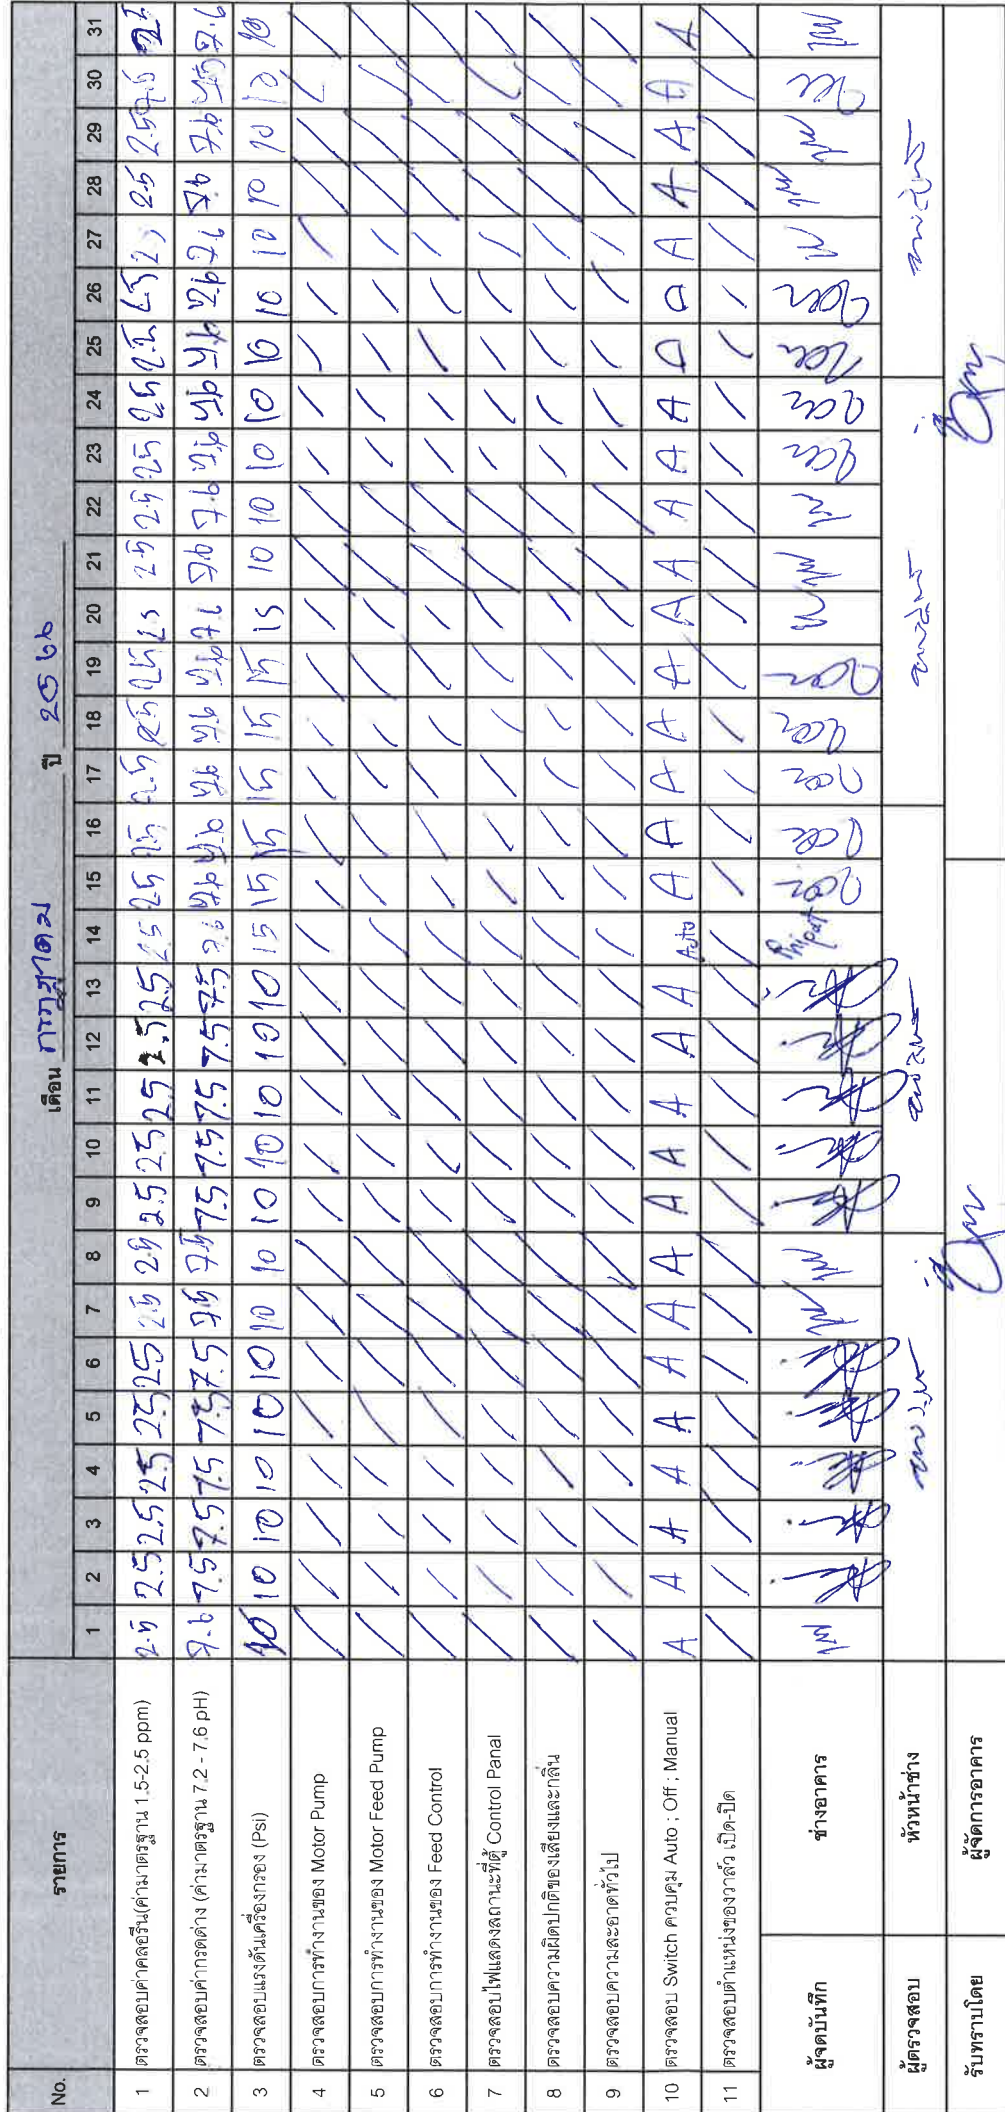 No. รายการ เดือน กรกฎาคม ปี 2566
1 2 3 4 5 6 7 8 9 10 11 12 13 14 15 16 17 18 19 20 21 22 23 24 25 26 27 28 29 30 31
1 ตรวจสอบค่าคลอรีน(ค่ามาตรฐาน 1.5-2.5 ppm) 2.5 2.5 2.5 2.5 2.5 2.5 2.5 2.5 2.5 2.5 2.5 2.5 2.5 2.5 2.5 2.5 2.5 2.5 2.5 2.5 2.5 2.5 2.5 2.5 2.5 2.5 2.5 2.5
2 ตรวจสอบค่ากรดด่าง (ค่ามาตรฐาน 7.2 - 7.6 pH) 7.6 7.5 7.5 7.5 7.5 7.5 7.5 7.5 7.5 7.5 7.5 7.5 7.5 7.6 7.6 7.6 7.6 7.6 7.6 7.6 7.6 7.6 7.6 7.6 7.6 7.6 7.6 7.6 7.6 7.6
3 ตรวจสอบแรงดันเครื่องกรอง (Psi) 10 10 10 10 10 10 10 10 10 10 10 10 10 15 15 15 15 15 15 15 10 10 10 10 10 10 10 10 10 10 10
4 ตรวจสอบการทำงานของ Motor Pump / / / / / / / / / / / / / / / / / / / / / / / / / / / / / / /
5 ตรวจสอบการทำงานของ Motor Feed Pump / / / / / / / / / / / / / / / / / / / / / / / / / / / / / / /
6 ตรวจสอบการทำงานของ Feed Control / / / / / / / / / / / / / / / / / / / / / / / / / / / / / / /
7 ตรวจสอบไฟแสดงสถานะที่ตู้ Control Panal / / / / / / / / / / / / / / / / / / / / / / / / / / / / / / /
8 ตรวจสอบความผิดปกติของเสียงและกลิ่น / / / / / / / / / / / / / / / / / / / / / / / / / / / / / / /
9 ตรวจสอบความสะอาดทั่วไป / / / / / / / / / / / / / / / / / / / / / / / / / / / / / / /
10 ตรวจสอบ Switch ควบคุม Auto ; Off ; Manual A A A A A A A A A A A A A Auto A A A A A A A A A A A A A A A A A
11 ตรวจสอบตำแหน่งของวาล์ว เปิด-ปิด / / / / / / / / / / / / / / / / / / / / / / / / / / / / / / /
ผู้จดบันทึก ช่างอาคาร
ผู้ตรวจสอบ หัวหน้าช่าง
รับทราบโดย ผู้จัดการอาคาร